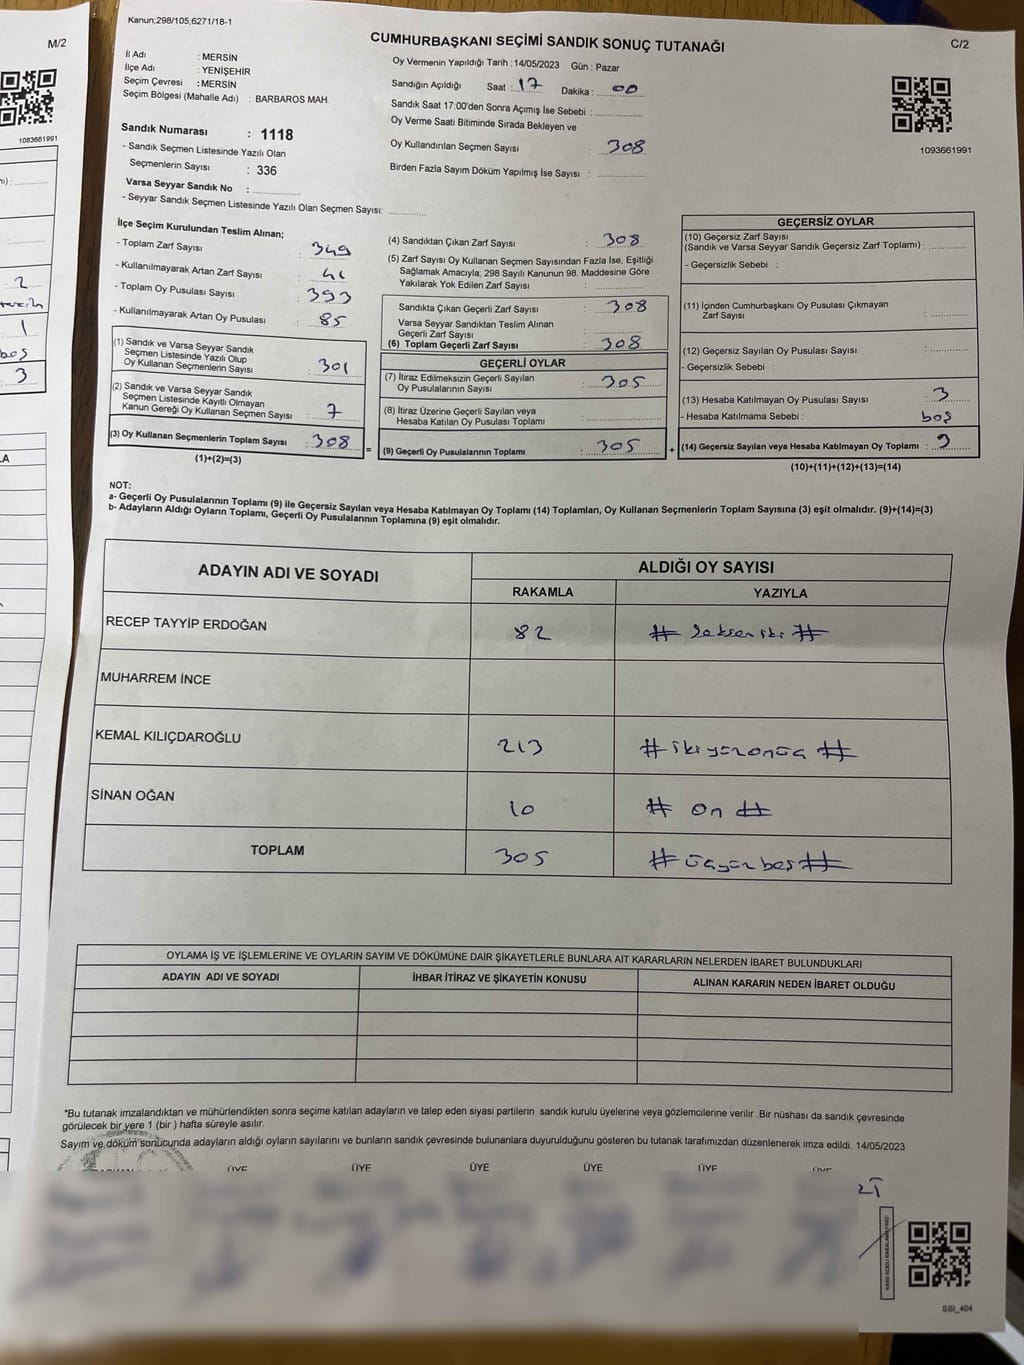 M/2
1083661991
2
1
boş
3
LA
Kanun;298/105,6271/18-1
C/2
CUMHURBAŞKANI SEÇİMİ SANDIK SONUÇ TUTANAĞI
İl Adı : MERSİN
İlçe Adı : YENİŞEHİR
Seçim Çevresi : MERSİN
Seçim Bölgesi (Mahalle Adı) : BARBAROS MAH.
Sandık Numarası : 1118
- Sandık Seçmen Listesinde Yazılı Olan
Seçmenlerin Sayısı : 336
Varsa Seyyar Sandık No : ............
- Seyyar Sandık Seçmen Listesinde Yazılı Olan Seçmen Sayısı: ............
Oy Vermenin Yapıldığı Tarih :14/05/2023 Gün : Pazar
Sandığın Açıldığı Saat : 17 Dakika : 00
Sandık Saat 17:00'den Sonra Açımış İse Sebebi : ............
Oy Verme Saati Bitiminde Sırada Bekleyen ve
Oy Kullandırılan Seçmen Sayısı : 308
Birden Fazla Sayım Döküm Yapılmış İse Sayısı : ............
1093661991
İlçe Seçim Kurulundan Teslim Alınan;
- Toplam Zarf Sayısı : 349
- Kullanılmayarak Artan Zarf Sayısı : 41
- Toplam Oy Pusulası Sayısı : 393
- Kullanılmayarak Artan Oy Pusulası : 85
(1) Sandık ve Varsa Seyyar Sandık
Seçmen Listesinde Yazılı Olup
Oy Kullanan Seçmenlerin Sayısı : 301
(2) Sandık ve Varsa Seyyar Sandık
Seçmen Listesinde Kayıtlı Olmayan
Kanun Gereği Oy Kullanan Seçmen Sayısı : 7
(3) Oy Kullanan Seçmenlerin Toplam Sayısı : 308
(1)+(2)=(3)
=
(4) Sandıktan Çıkan Zarf Sayısı : 308
(5) Zarf Sayısı Oy Kullanan Seçmen Sayısından Fazla İse, Eşitliği
Sağlamak Amacıyla; 298 Sayılı Kanunun 98. Maddesine Göre
Yakılarak Yok Edilen Zarf Sayısı : ............
Sandıkta Çıkan Geçerli Zarf Sayısı : 308
Varsa Seyyar Sandıktan Teslim Alınan
Geçerli Zarf Sayısı : ............
(6) Toplam Geçerli Zarf Sayısı : 308
GEÇERLİ OYLAR
(7) İtiraz Edilmeksizin Geçerli Sayılan
Oy Pusulalarının Sayısı : 305
(8) İtiraz Üzerine Geçerli Sayılan veya
Hesaba Katılan Oy Pusulası Toplamı : ............
(9) Geçerli Oy Pusulalarının Toplamı : 305
+
GEÇERSİZ OYLAR
(10) Geçersiz Zarf Sayısı
(Sandık ve Varsa Seyyar Sandık Geçersiz Zarf Toplamı) : ............
- Geçersizlik Sebebi :
(11) İçinden Cumhurbaşkanı Oy Pusulası Çıkmayan
Zarf Sayısı : ............
(12) Geçersiz Sayılan Oy Pusulası Sayısı : ............
- Geçersizlik Sebebi :
(13) Hesaba Katılmayan Oy Pusulası Sayısı : 3
- Hesaba Katılmama Sebebi : boş
(14) Geçersiz Sayılan veya Hesaba Katılmayan Oy Toplamı : 3
(10)+(11)+(12)+(13)=(14)
NOT:
a- Geçerli Oy Pusulalarının Toplamı (9) ile Geçersiz Sayılan veya Hesaba Katılmayan Oy Toplamı (14) Toplamları, Oy Kullanan Seçmenlerin Toplam Sayısına (3) eşit olmalıdır. (9)+(14)=(3)
b- Adayların Aldığı Oyların Toplamı, Geçerli Oy Pusulalarının Toplamına (9) eşit olmalıdır.
ADAYIN ADI VE SOYADI ALDIĞI OY SAYISI
RAKAMLA YAZIYLA
RECEP TAYYİP ERDOĞAN 82 # Seksen iki #
MUHARREM İNCE
KEMAL KILIÇDAROĞLU 213 # ikiyüzonüç #
SİNAN OĞAN 10 # on #
TOPLAM 305 # üçyüzbeş #
OYLAMA İŞ VE İŞLEMLERİNE VE OYLARIN SAYIM VE DÖKÜMÜNE DAİR ŞİKAYETLERLE BUNLARA AİT KARARLARIN NELERDEN İBARET BULUNDUKLARI
ADAYIN ADI VE SOYADI İHBAR İTİRAZ VE ŞİKAYETİN KONUSU ALINAN KARARIN NEDEN İBARET OLDUĞU
*Bu tutanak imzalandıktan ve mühürlendikten sonra seçime katılan adayların ve talep eden siyasi partilerin sandık kurulu üyelerine veya gözlemcilerine verilir .Bir nüshası da sandık çevresinde
görülecek bir yere 1 (bir ) hafta süreyle asılır.
Sayım ve döküm sonucunda adayların aldığı oyların sayılarını ve bunların sandık çevresinde bulunanlara duyurulduğunu gösteren bu tutanak tarafımızdan düzenlenerek imza edildi. 14/05/2023
ÜYE ÜYE ÜYE ÜYE ÜYE ÜYE
SSI_404